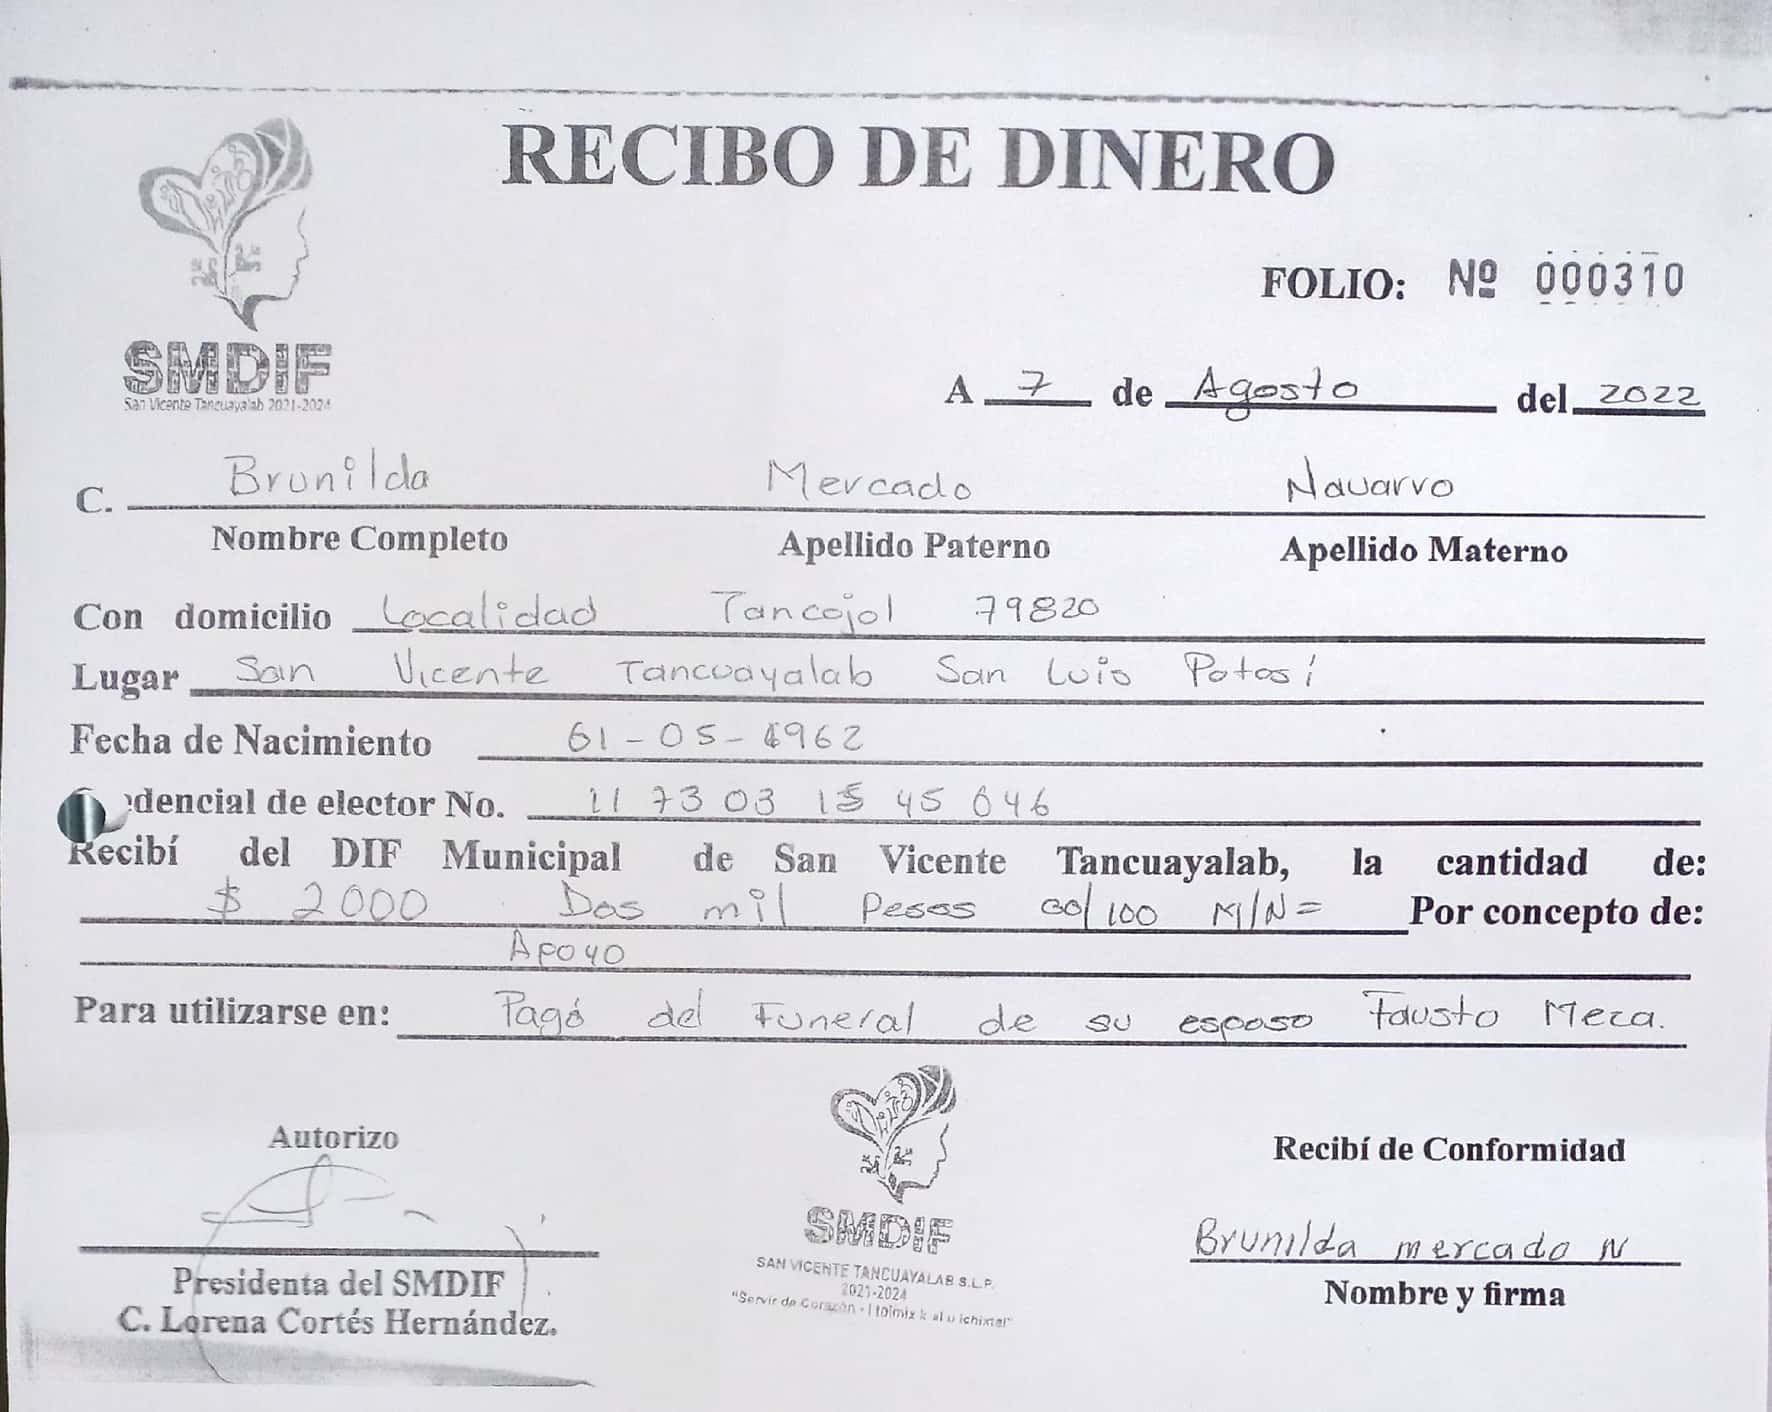 RECIBO DE DINERO
FOLIO: Nº 000310
SMDIF
San Vicente Tancuayalab 2021-2024
A 7 de Agosto del 2022
C. Brunilda Mercado Navarro
Nombre Completo Apellido Paterno Apellido Materno
Con domicilio Localidad Tancojol 79820
Lugar San Vicente Tancuayalab San Luis Potosí
Fecha de Nacimiento 61-05-1962
dencial de elector No. 11 73 03 15 45 646
Recibí del DIF Municipal de San Vicente Tancuayalab, la cantidad de:
$ 2000 Dos mil Pesos 00/100 M/N= Por concepto de:
Apoyo
Para utilizarse en: Pagó del Funeral de su esposo Fausto Meza.
Autorizo
Recibí de Conformidad
SMDIF
SAN VICENTE TANCUAYALAB S.L.P.
2021-2024
"Servir de Corazón -
Brunilda mercado N
Presidenta del SMDIF
Nombre y firma
C. Lorena Cortés Hernández.